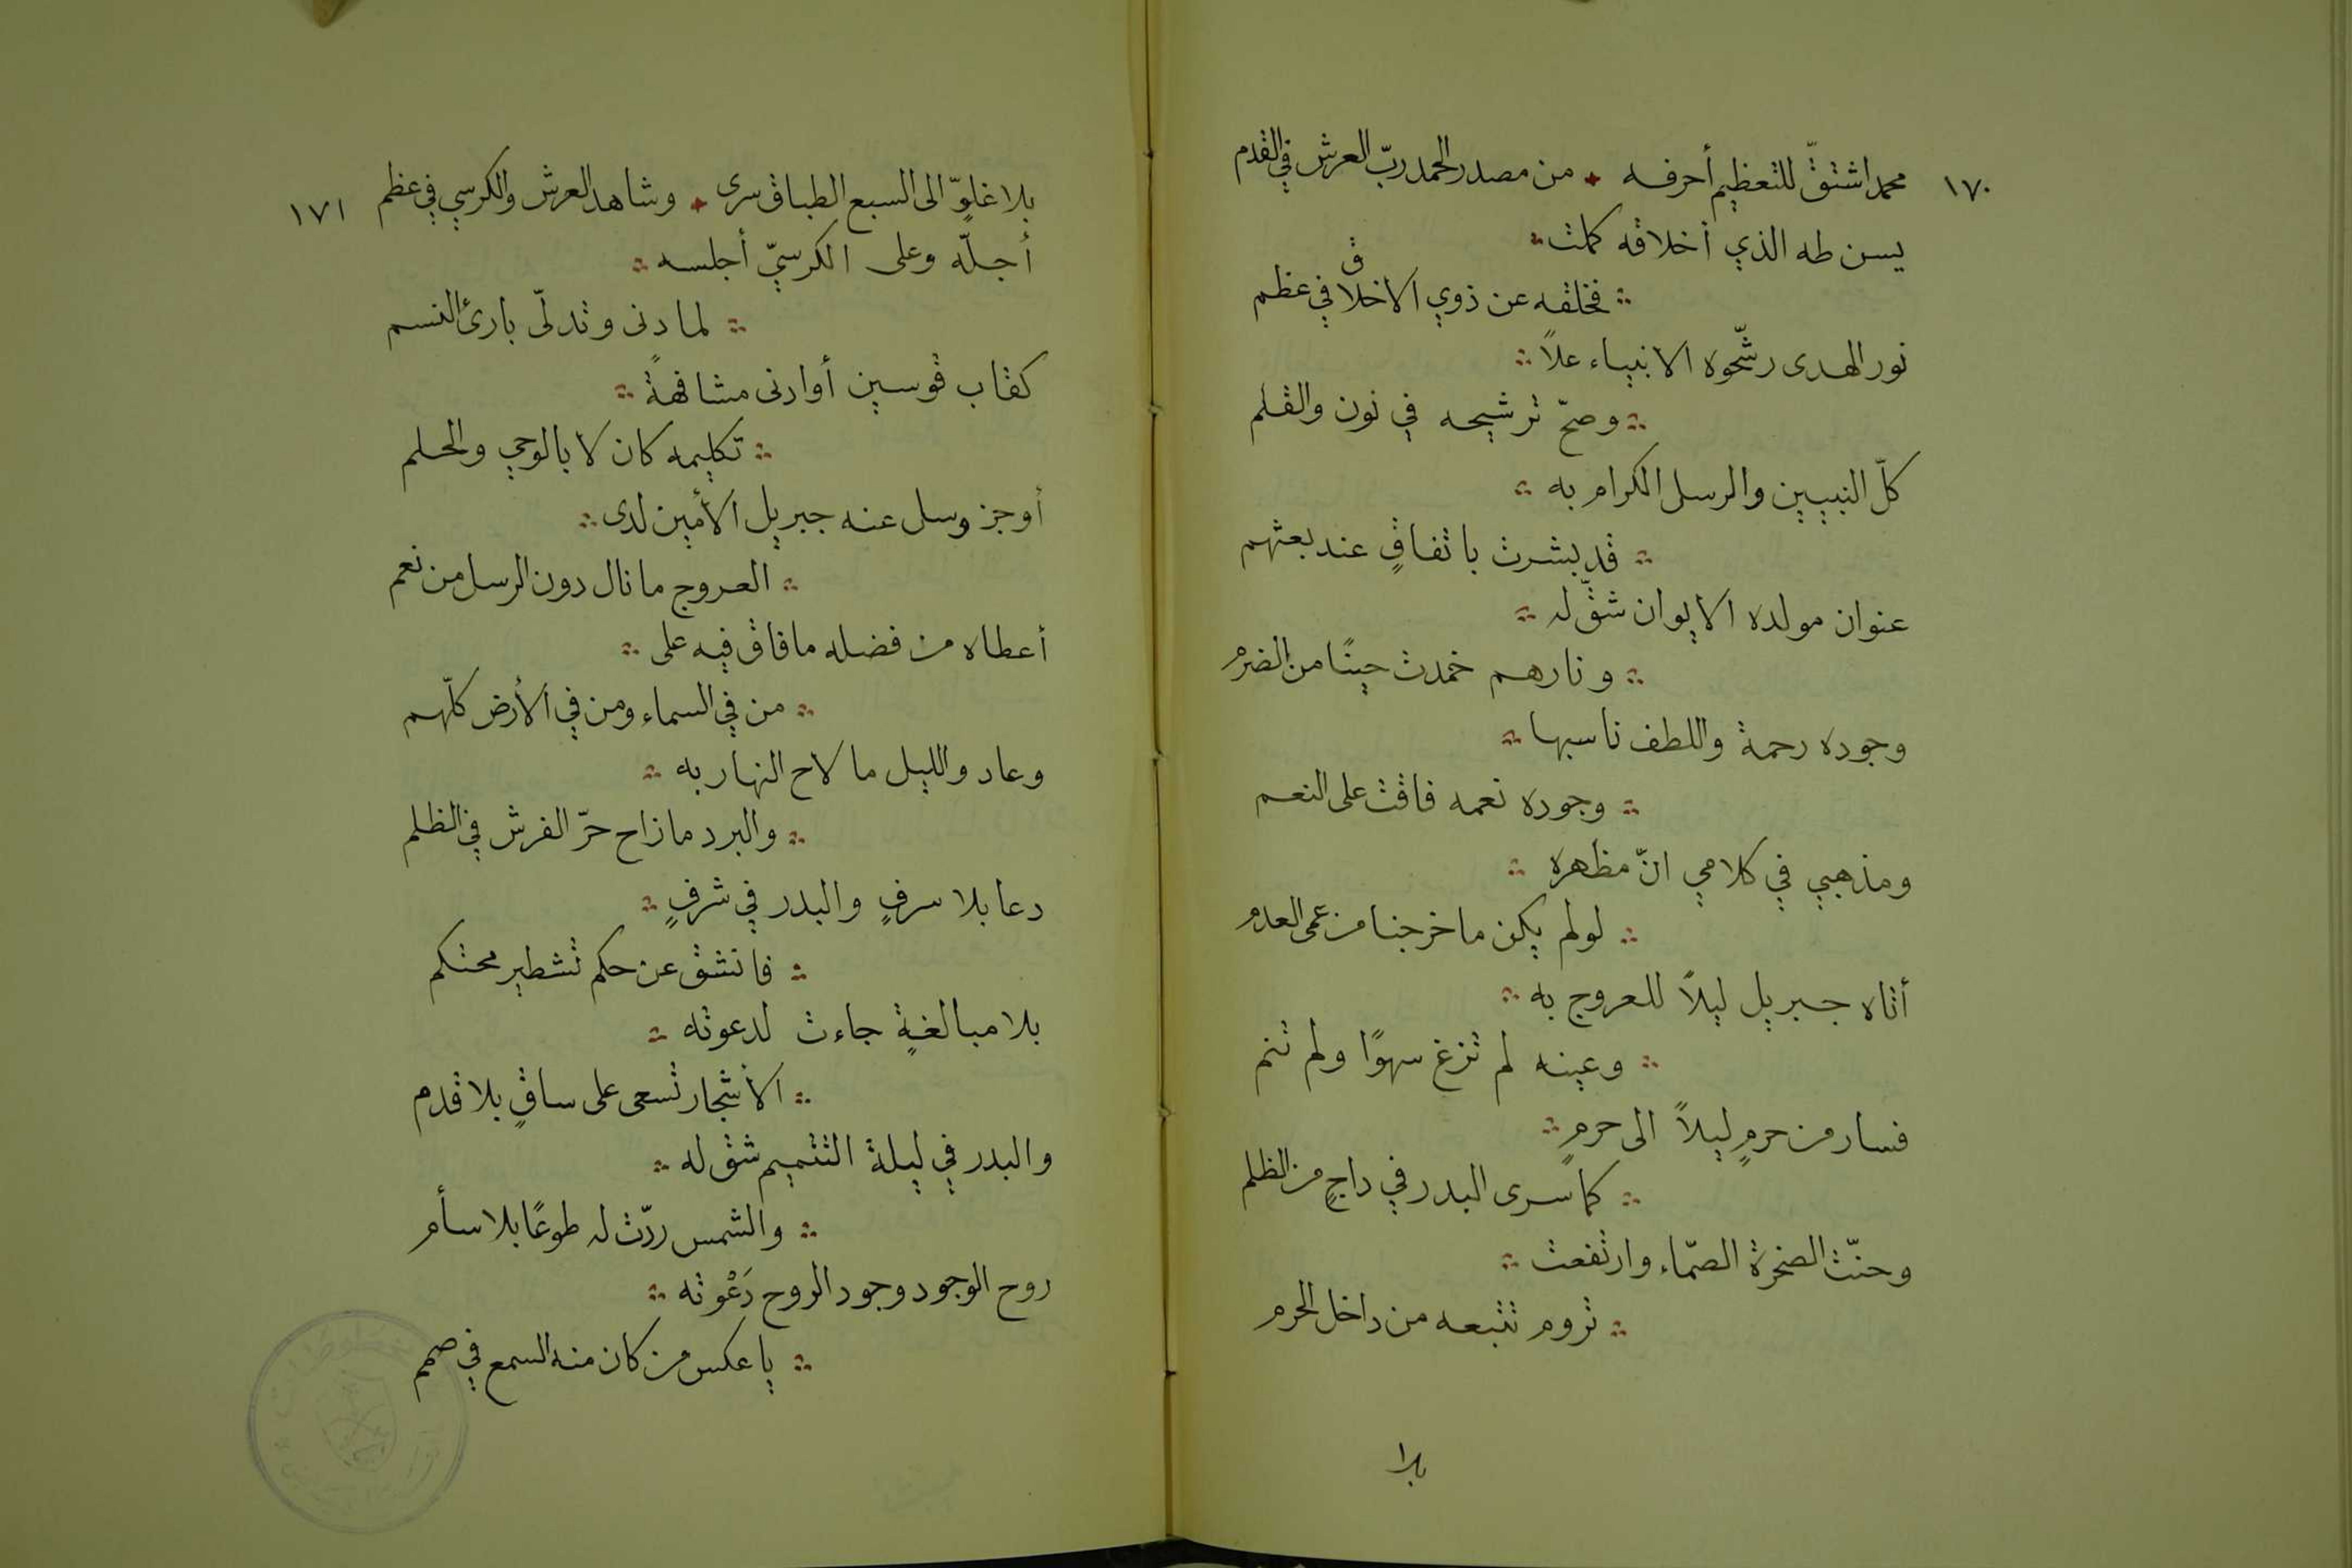 ١٧٠
محمد اشتقّ للتعظيم أحرفه ۰ من مصدر الحمد ربّ العرش في القدم
يسن طه الذي أخلاقه كملت
فخلقه عن ذوي الاخلاق في عظم
نور الهدى رشّحوه الانبياء علاً
وصحّ ترشيحه في نون والقلم
كلّ النبيين والرسل الكرام به
قد بشرت باتفاقٍ عند بعثهم
عنوان مولده الايوان شقّ له
ونارهم خمدت حينًا من الضرم
وجوده رحمة واللطف ناسبها
وجوده نعمه فاقت على النعم
ومذهبي في كلامي انّ مظهره
لو لم يكن ما خرجنا من عمى العدم
أتاه جبريل ليلاً للعروج به
وعينه لم تزغ سهوًا ولم تنم
فسار من حرمٍ ليلاً الى حرمٍ
كما سرى البدر في داجٍ من الظلم
وحنّت الصخرة الصمّاء وارتفعت
تروم تتبعه من داخل الحرم
بلا
١٧١
بلا غلوٍّ الى السبع الطباق سرى ۰ وشاهد العرش والكرسي في عظم
أجلّه وعلى الكرسيّ أجلسه
لما دنى وتدلّى بارئ النسم
كقاب قوسين أو ادنى مشافهةً
تكليمه كان لا بالوحي والحلم
أوجز وسل عنه جبريل الأمين لدى
العروج ما نال دون الرسل من نعم
أعطاه من فضله ما فاق فيه على
من في السماء ومن في الأرض كلّهم
وعاد والليل ما لاح النهار به
والبرد ما زاح حرّ الفرش في الظلم
دعا بلا سرفٍ والبدر في شرفٍ
فانشق عن حكم تشطير محتكم
بلا مبالغةٍ جاءت لدعوته
الأشجار تسعى على ساقٍ بلا قدم
والبدر في ليلة التتميم شق له
والشمس ردّت له طوعًا بلا سأم
روح الوجود وجود الروح دَعْوته
يا عكس من كان منه السمع في صمم